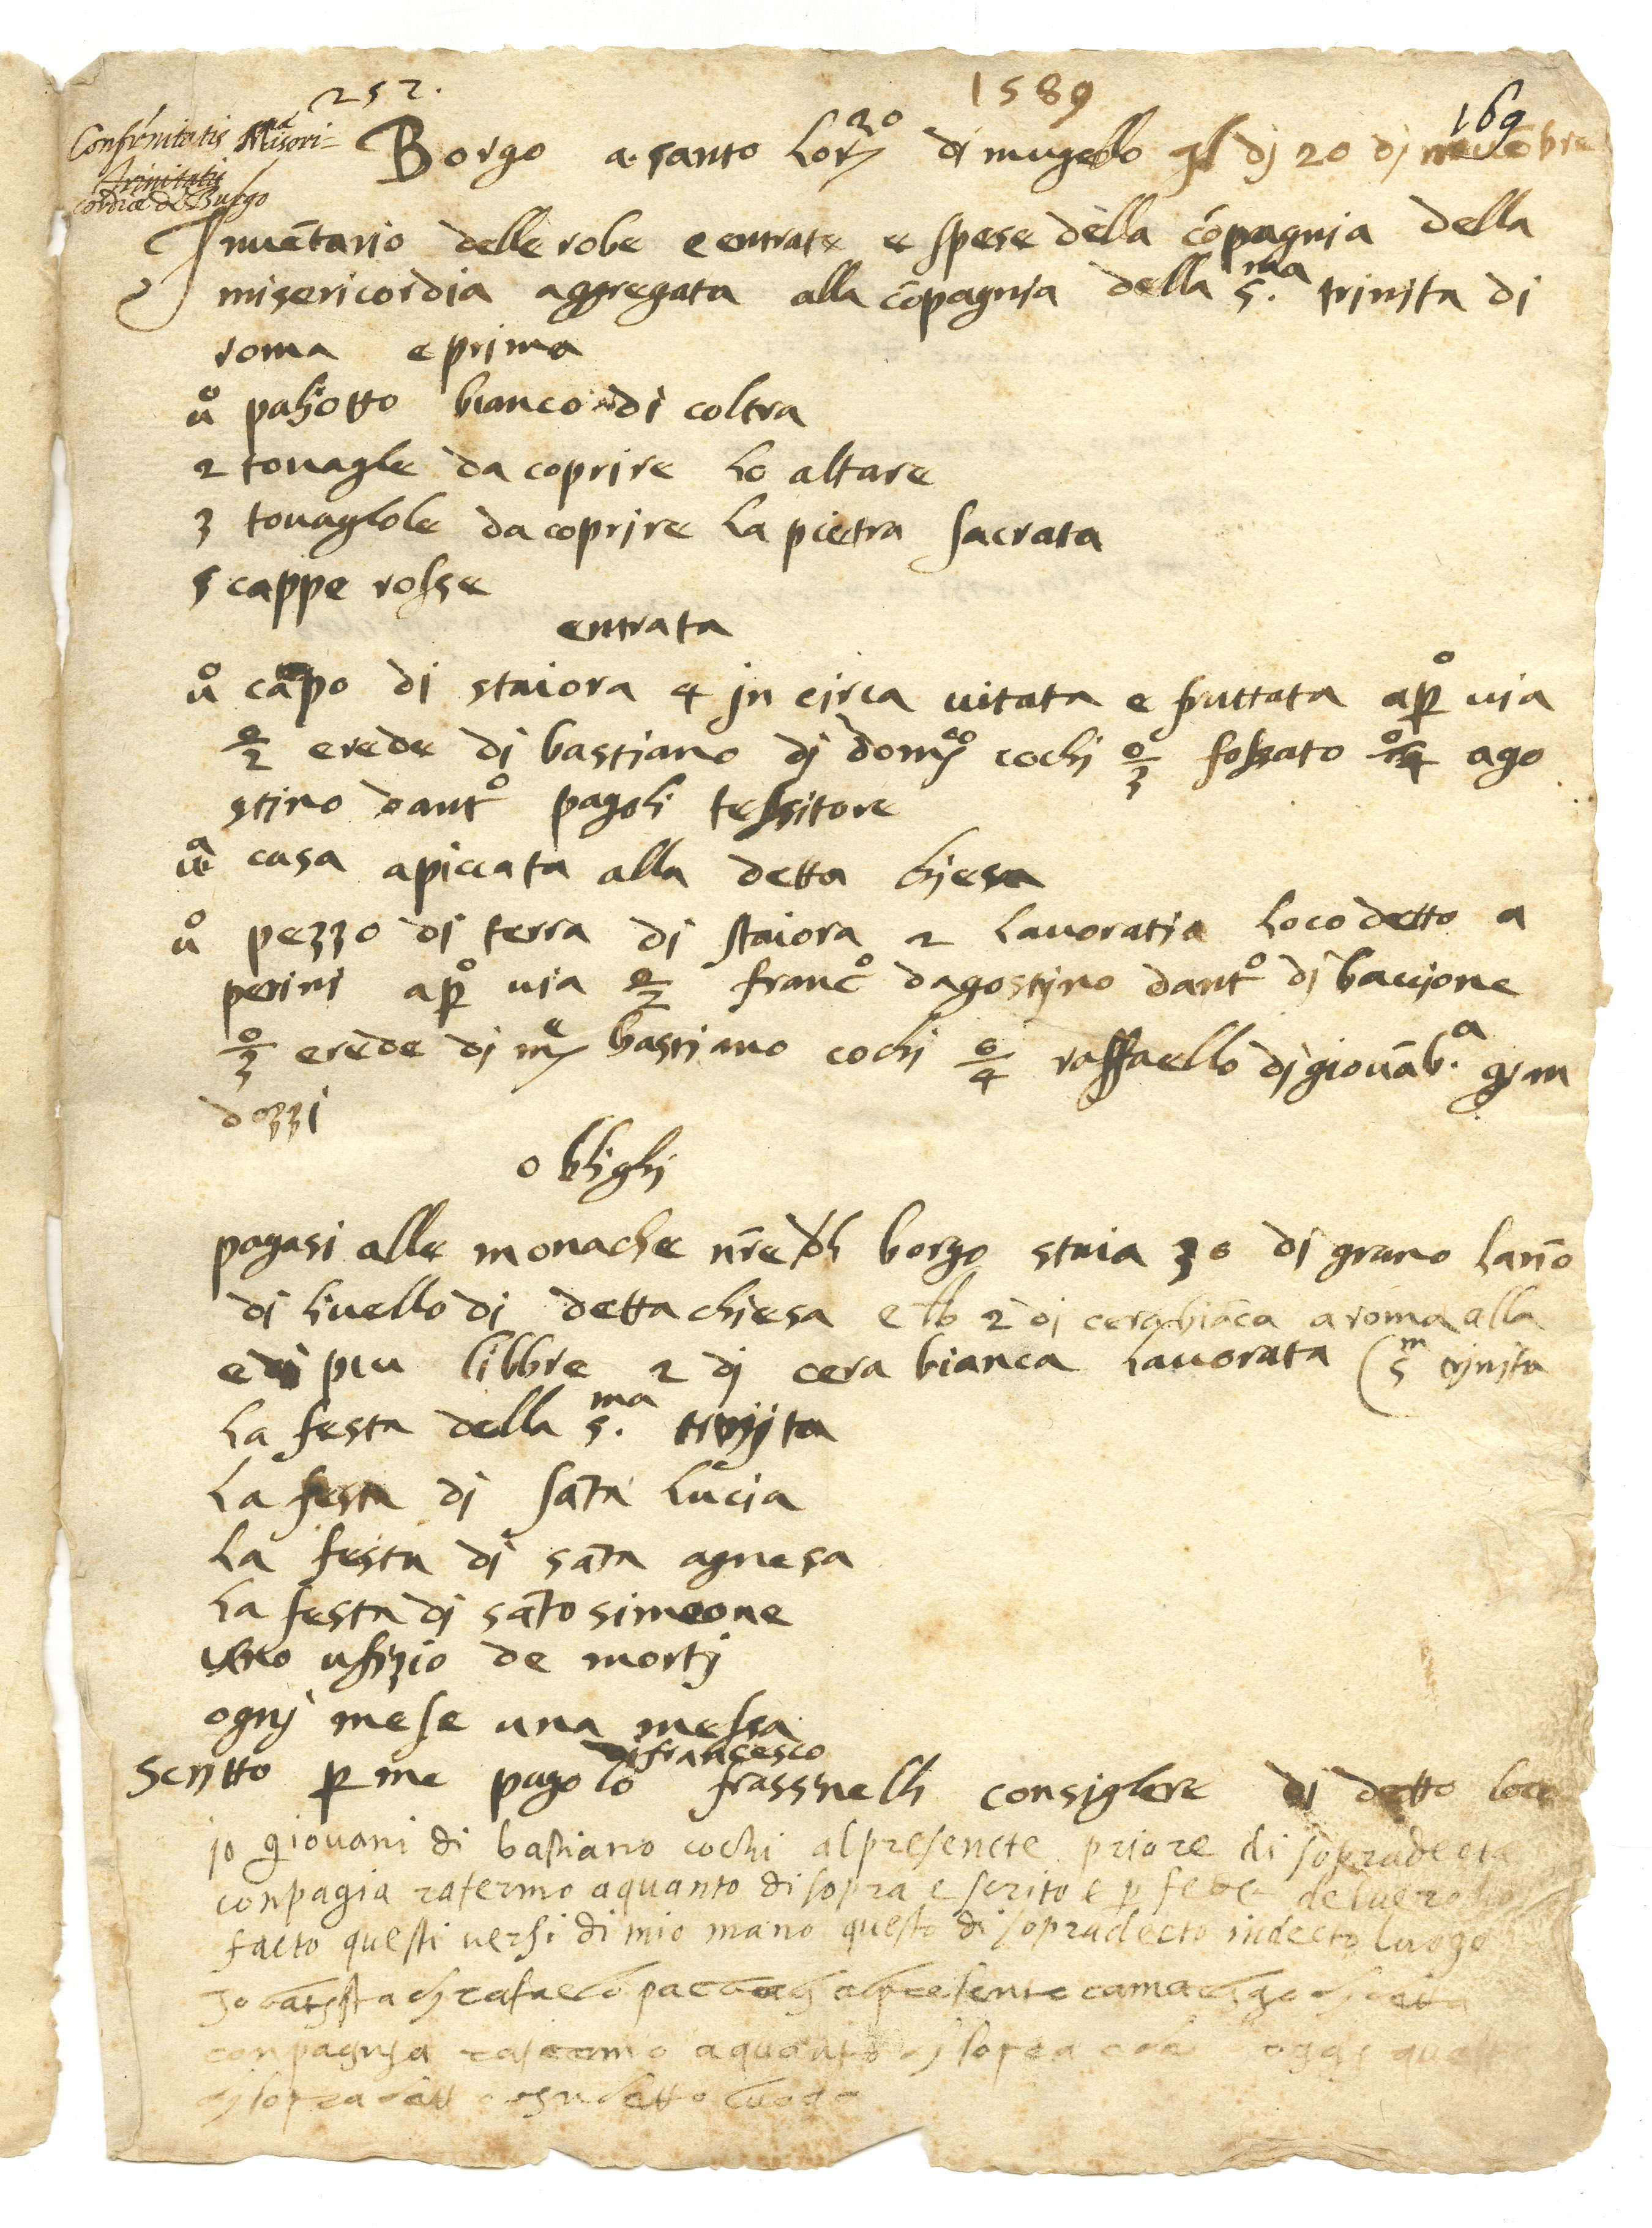 252.
1589
169
Confr̄nitatis Misori-
Trinitatis
cordiæ de Burgo
Borgo a santo Lorzo di mugello dj 20 dj novēbre
Inuētario delle robe e entrate e spese della cōpagnia della
misericordia aggregata alla cōpagnia della s.ma trinita di
roma e prima
uº paliotto bianco di coltra
2 touagle da coprire lo altare
3 touaglole da coprire la pietra sacrata
5 cappe rosse
entrata
uº cāpo di staiora 4 in circa uitata e fruttata apº uia
2º erede di bastiano di domco cochi 3º fossato 4º ago
stino dantº pagoli tessitore
uª casa apiccata alla detta chiesa
uº pezzo di terra di staiora 2 lauoratia loco detto a
perini apº uia 2º francº dagostino dantº di baccione
3º erede di me bastiano cochi 4º raffaello di giouāb.a gin
dozzi
oblighi
pagasi alle monache nr̄e del borgo staia 30 di grano lanō
di liuello di detta chiesa e lb 2 di cera biāca a roma alla
e di piu libbre 2 di cera bianca lauorata (sm trinita
la festa della s.ma trinita
la festa di sāta lucia
la festa di sāta agnesa
la festa di sāto simeone
uno ufizio de morti
ogni mese una messa
di francesco
Scritto p me pagolo frassinelli consiglere di detto loco
io giouani di bastiano cochi al presencte priore di sopradecta
conpagia rafermo a quanto di sopra e scrito e p fede del uero ho
facto questi uersi di mio mano questo di sopradecto in decto luogo
Io batista di rafaello al presente camarlingo di detta
conpagnia rafermo a quanto di sopra oggi questo
di sopradetto in detto luogo